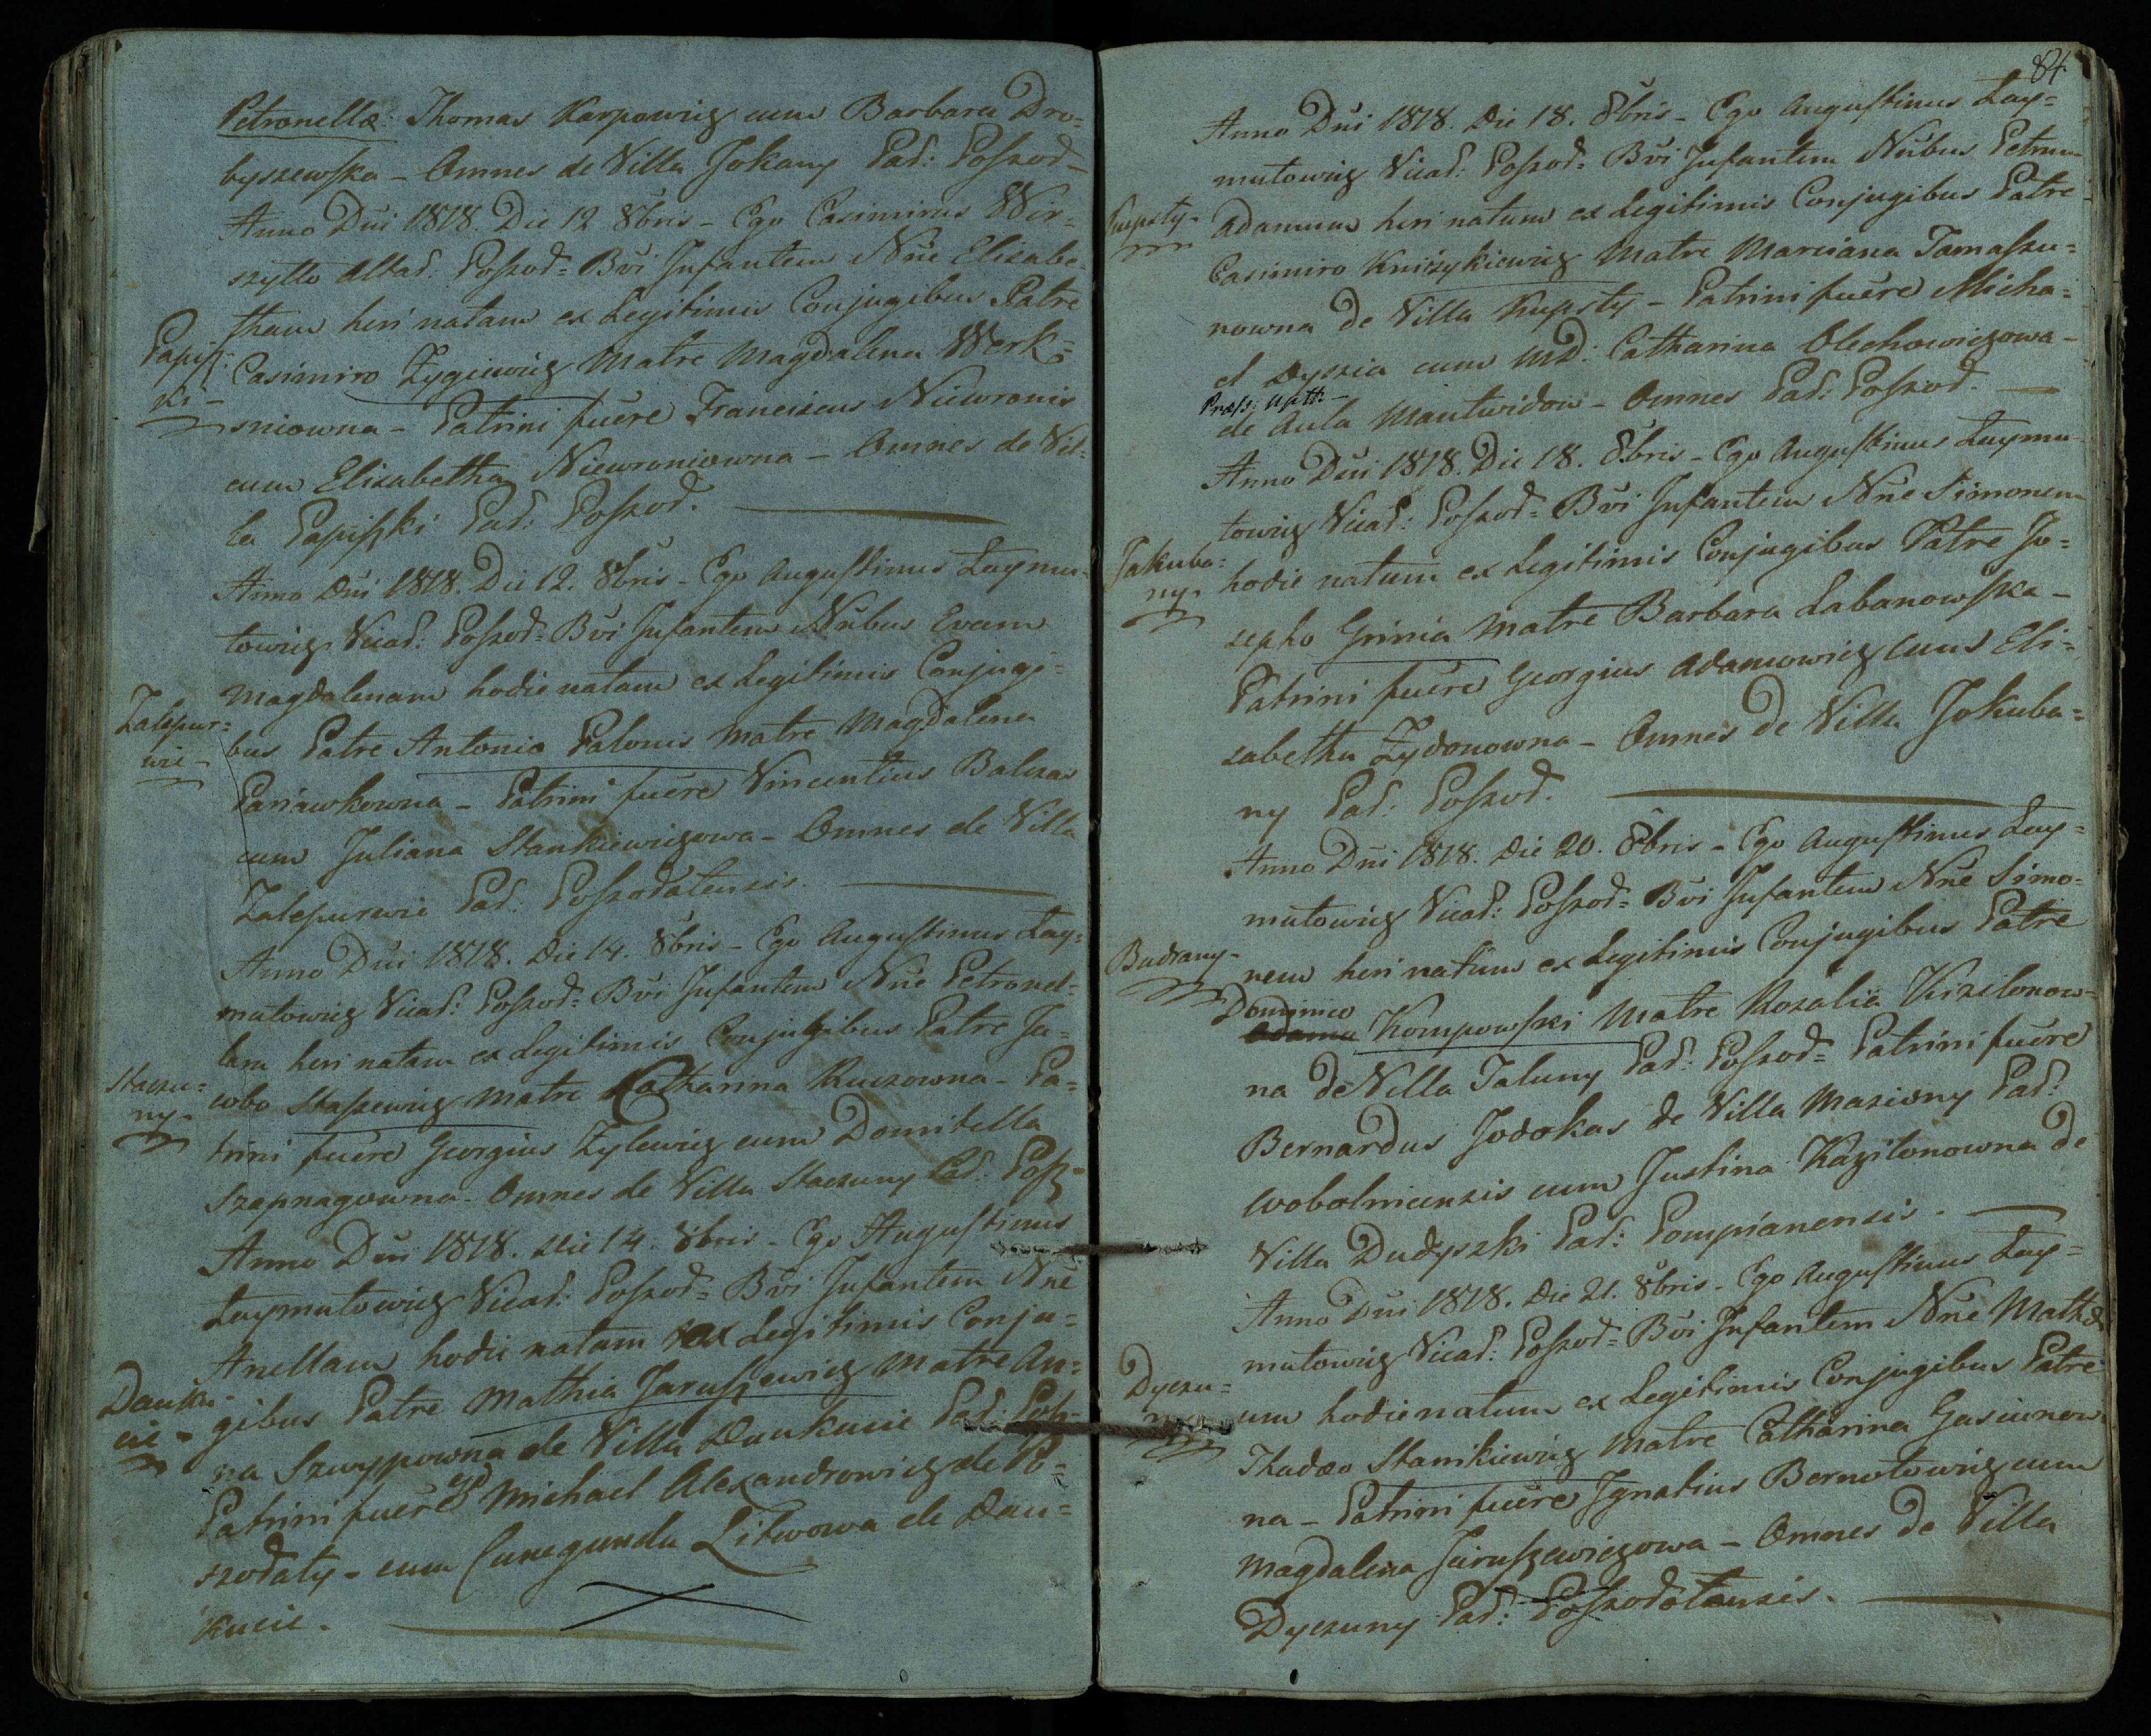 Petronellæ: Thomas Karpowicz cum Barbara Dro=
byszewska – Omnes de Villa Jokany Pad: Poszod–
Anno Dni 1818. Die 12 8bris – Ego Casimirus Wir=
szytto Altad: Poszod= Bvi Infantem Nne Elisabe=
tham heri natam ex Legitimis Conjugibus Patre
Papisz=
ki –
Casimiro Zygiewicz Matre Magdalena Werk=
sniowna – Patrini fuere Franciscus Niewronis
cum Elisabetha Niewroniowna – Omnes de Vil=
la Papiszki Pad: Poszod.
Anno Dni 1818. Die 12. 8bris – Ego Augustinus Laymu=
towicz Vicad: Poszod= Bvi Infantem Nnbus Evam
Magdalenam hodie natam ex Legitimis Conjugi=
Zalepur=
wie –
bus Patre Antonio Palonis Matre Magdalena
Paniawkowna – Patrini fuere Vincentius Balczas
cum Juliana Stankiewiczowa – Omnes de Villa
Zalepurwie Pad: Poszodatensis.
Anno Dni 1818. Die 14. 8bris – Ego Augustinus Lay=
mutowicz Vicad: Poszod= Bvi Infantem Nne Petronel=
lam heri natam ex Legitimis Conjugibus Patre Ja=
Staczu=
ny –
cobo Staszewicz Matre Catharina Ruczowna – Pa=
trini fuere Georgius Zylewicz cum Domitella
Szapnagowna – Omnes de Villa Staczuny Pad: Posz–
Anno Dni 1818. Die 14. 8bris – Ego Augustinus
Laymutowicz Vicad: Poszod= Bvi Infantem Nne
Anellam hodie natam ex Legitimis Conju=
Dauku=
cie –
gibus Patre Mathia Jaruszewicz Matre An=
na Szwyppowna de Villa Daukucie Pad: Posz–
Patrini fuere Michael Alexandrowicz de Po=
szodaty – cum Cunegunda Litwowa de Dau=
kucie.
84
Anno Dni 1818. Die 18. 8bris – Ego Augustinus Lay=
mutowicz Vicad: Poszod= Bvi Infantem Nnbus Petrum
Kupsty –
Adamum heri natum ex Legitimis Conjugibus Patre
Casimiro Kniżykiewicz Matre Marciana Tomaszu=
nowna de Villa Kupsty – Patrini fuere Micha=
el Dyszia cum MD: Catharina Olechowiczowa –
de Aula Mantwidow – Omnes Pad: Poszod.
Anno Dni 1818. Die 18. 8bris – Ego Augustinus Laymu
towicz Vicad: Poszod= Bvi Infantem Nne Simonem
Jakuba=
ny –
hodie natum ex Legitimis Conjugibus Patre Jo=
sepho Grinia Matre Barbara Labanowska –
Patrini fuere Georgius Adamowicz cum Eli=
sabetha Zydonowna – Omnes de Villa Jokuba=
ny Pad: Poszod.
Anno Dni 1818. Die 20. 8bris – Ego Augustinus Lay=
mutowicz Vicad: Poszod= Bvi Infantem Nne Simo=
Budrany –
nem heri natum ex Legitimis Conjugibus Patre
Dominico
Adamo Kompowski Matre Rozalia Kizilonow=
na de Villa Taluny Pad: Poszod= Patrini fuere
Bernardus Jodokas de Villa Maziony Pad:
Wobolnicensis cum Justina Kazilonowna de
Villa Dudyszki Pad: Pompianensis.
Anno Dni 1818. Die 21. 8bris – Ego Augustinus Lay=
mutowicz Vicad: Poszod= Bvi Infantem Nne Mathæ
Dyczu=
ny
um hodie natum ex Legitimis Conjugibus Patre
Thadæo Stanikiewicz Matre Catharina Gasiunow
na – Patrini fuere Ignatius Bernotowicz cum
Magdalena Jaruszewiczowa – Omnes de Villa
Dyczuny Pad: Poszodotensis.